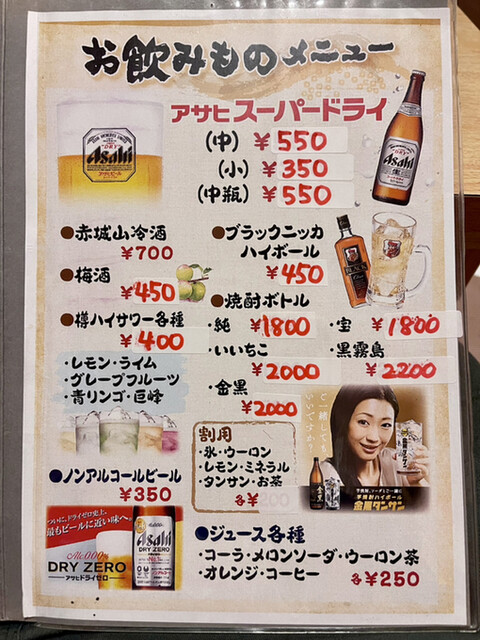 お飲みものメニュー
アサヒスーパードライ
(中) ¥550
(小) ¥350
(中瓶) ¥550
Asahi
Asahi
●赤城山冷酒
¥700
●ブラックニッカ
ハイボール
¥450
●梅酒
¥450
●焼酎ボトル
●樽ハイサワー各種
¥400
・純 ¥1800
・宝 ¥1800
・いいちこ
¥2000
・黒霧島
¥2200
・金黒
¥2000
・レモン・ライム
・グレープフルーツ
・青リンゴ・巨峰
割用
・氷・ウーロン
・レモン・ミネラル
・タンサン・お茶
各¥200
芋焼酎ハイボール
金黒タンサン
●ノンアルコールビール
¥350
ついに、ドライゼロ史上、
最もビールに近い味へ。
Alc.0.00%
DRY ZERO
アサヒドライゼロ
Asahi
DRY ZERO
●ジュース各種
・コーラ・メロンソーダ・ウーロン茶
・オレンジ・コーヒー
各¥250